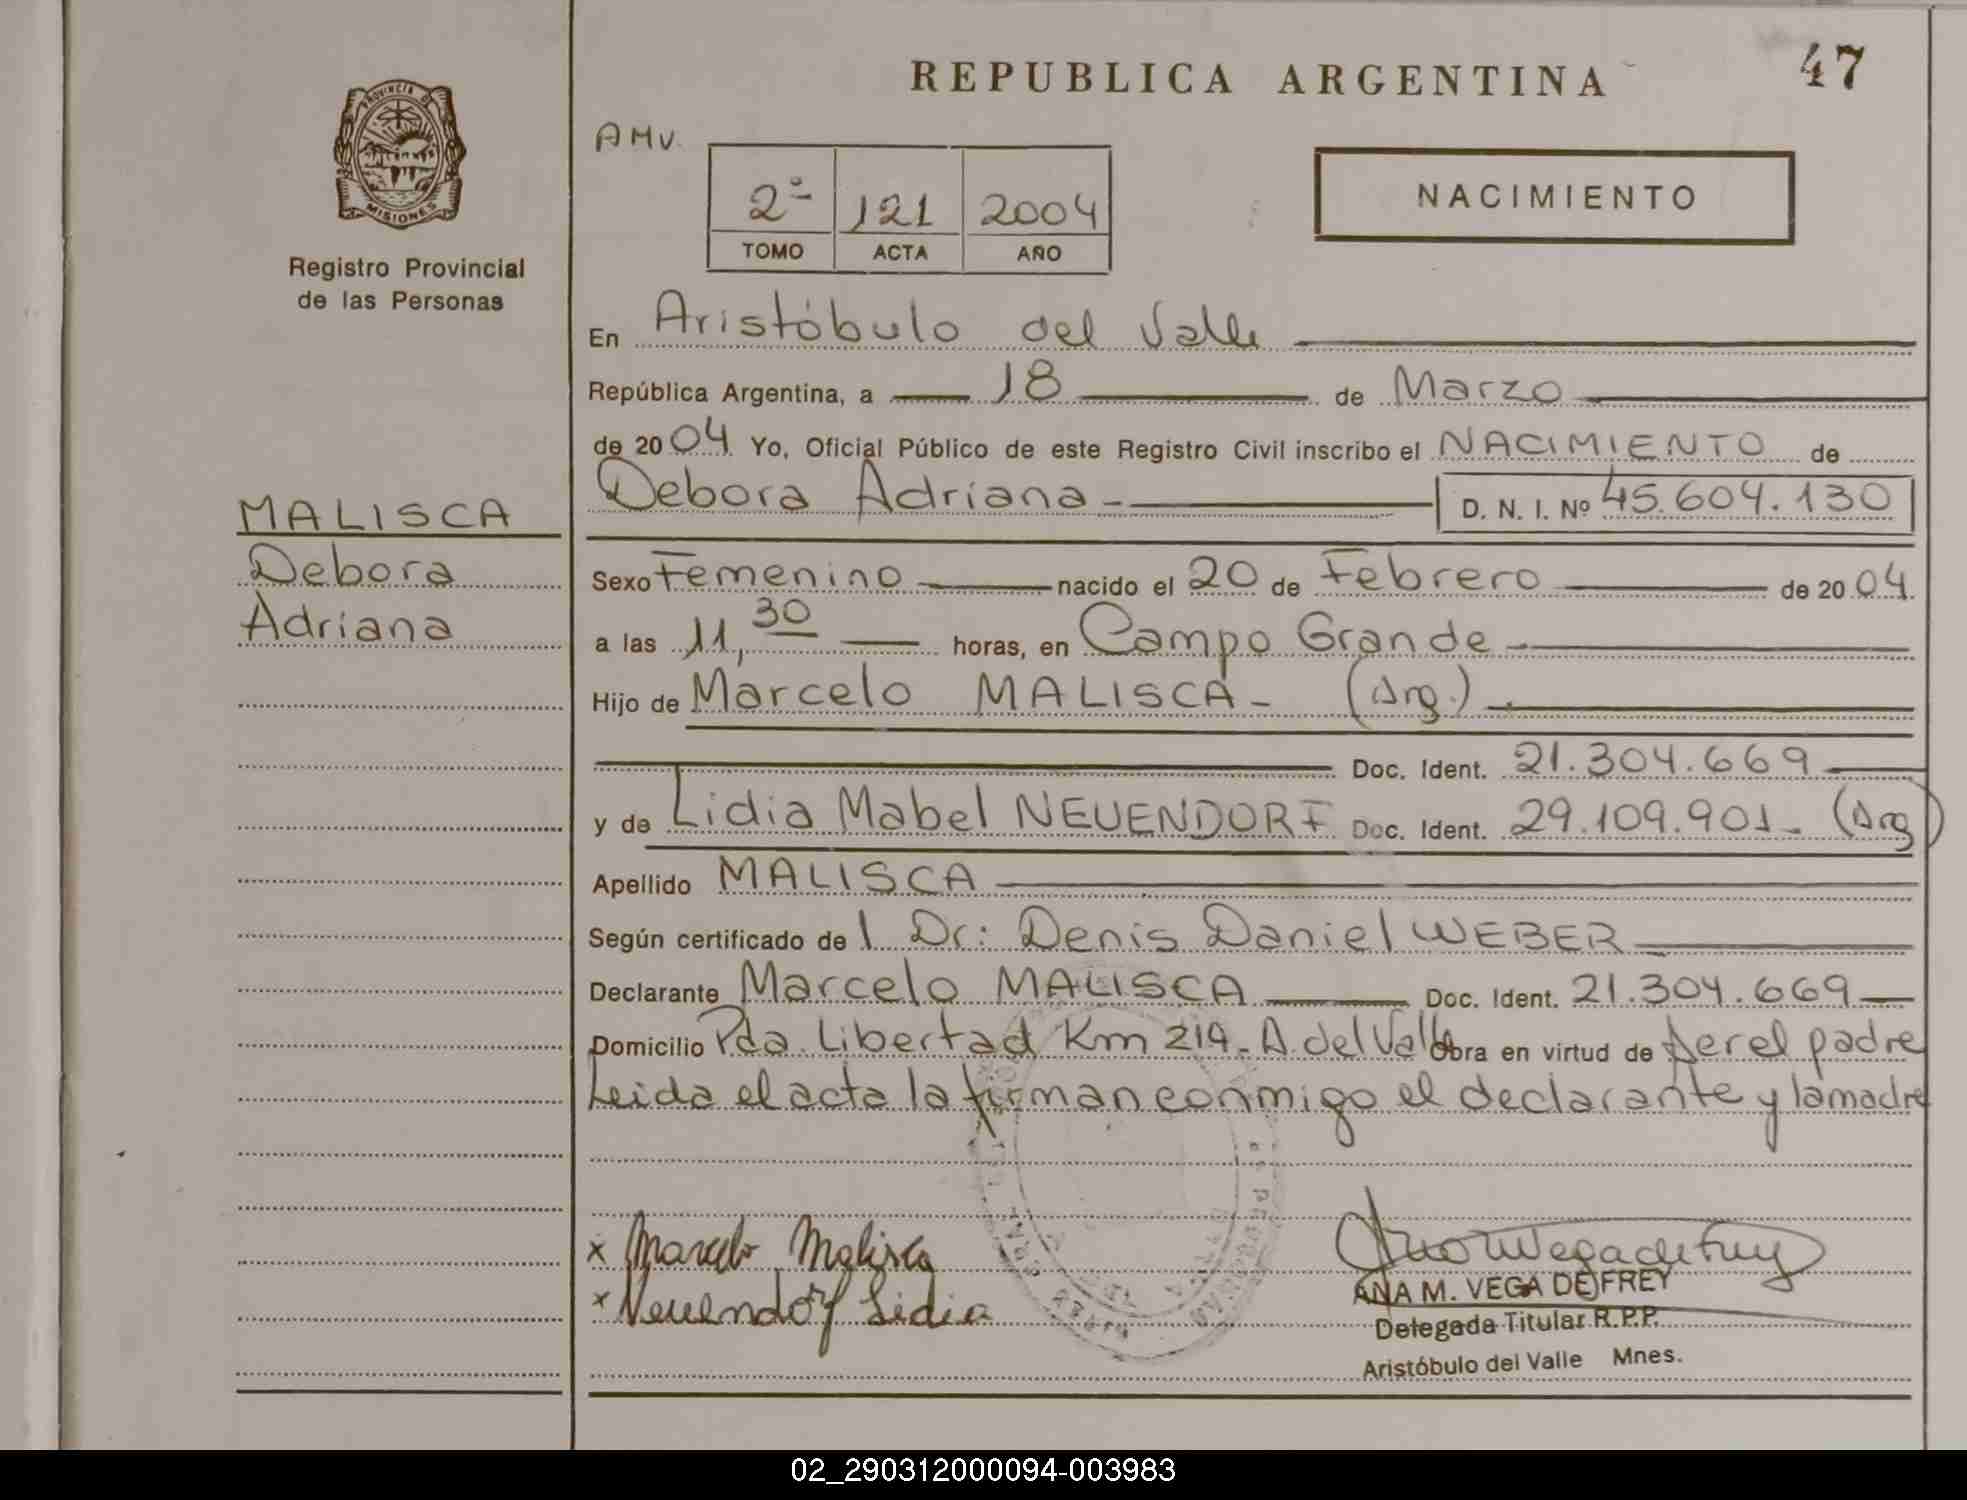 REPUBLICA ARGENTINA
47
PROVINCIA DE
MISIONES
Registro Provincial
de las Personas
AMV.
2º 121 2004
TOMO ACTA AÑO
NACIMIENTO
En Aristóbulo del Valle
República Argentina, a 18 de Marzo
de 2004 Yo, Oficial Público de este Registro Civil inscribo el NACIMIENTO de
Debora Adriana - D. N. I. Nº 45.604.130
MALISCA
Debora
Adriana
Sexo Femenino nacido el 20 de Febrero de 2004.
a las 11,30 horas, en Campo Grande -
Hijo de Marcelo MALISCA - (Arg.)
Doc. Ident. 21.304.669
y de Lidia Mabel NEUENDORF Doc. Ident. 29.109.901 - (Arg)
Apellido MALISCA
Según certificado de l Dr: Denis Daniel WEBER
Declarante Marcelo MALISCA Doc. Ident. 21.304.669
Domicilio Pda. Libertad Km 219 - A. del Valle Obra en virtud de ser el padre
Leida el acta la firman conmigo el declarante y la madre
x Marcelo Malisca
x Neuendorf Lidia
ANA M. VEGA DE FREY
Delegada Titular R.P.P.
Aristóbulo del Valle Mnes.
02_290312000094-003983